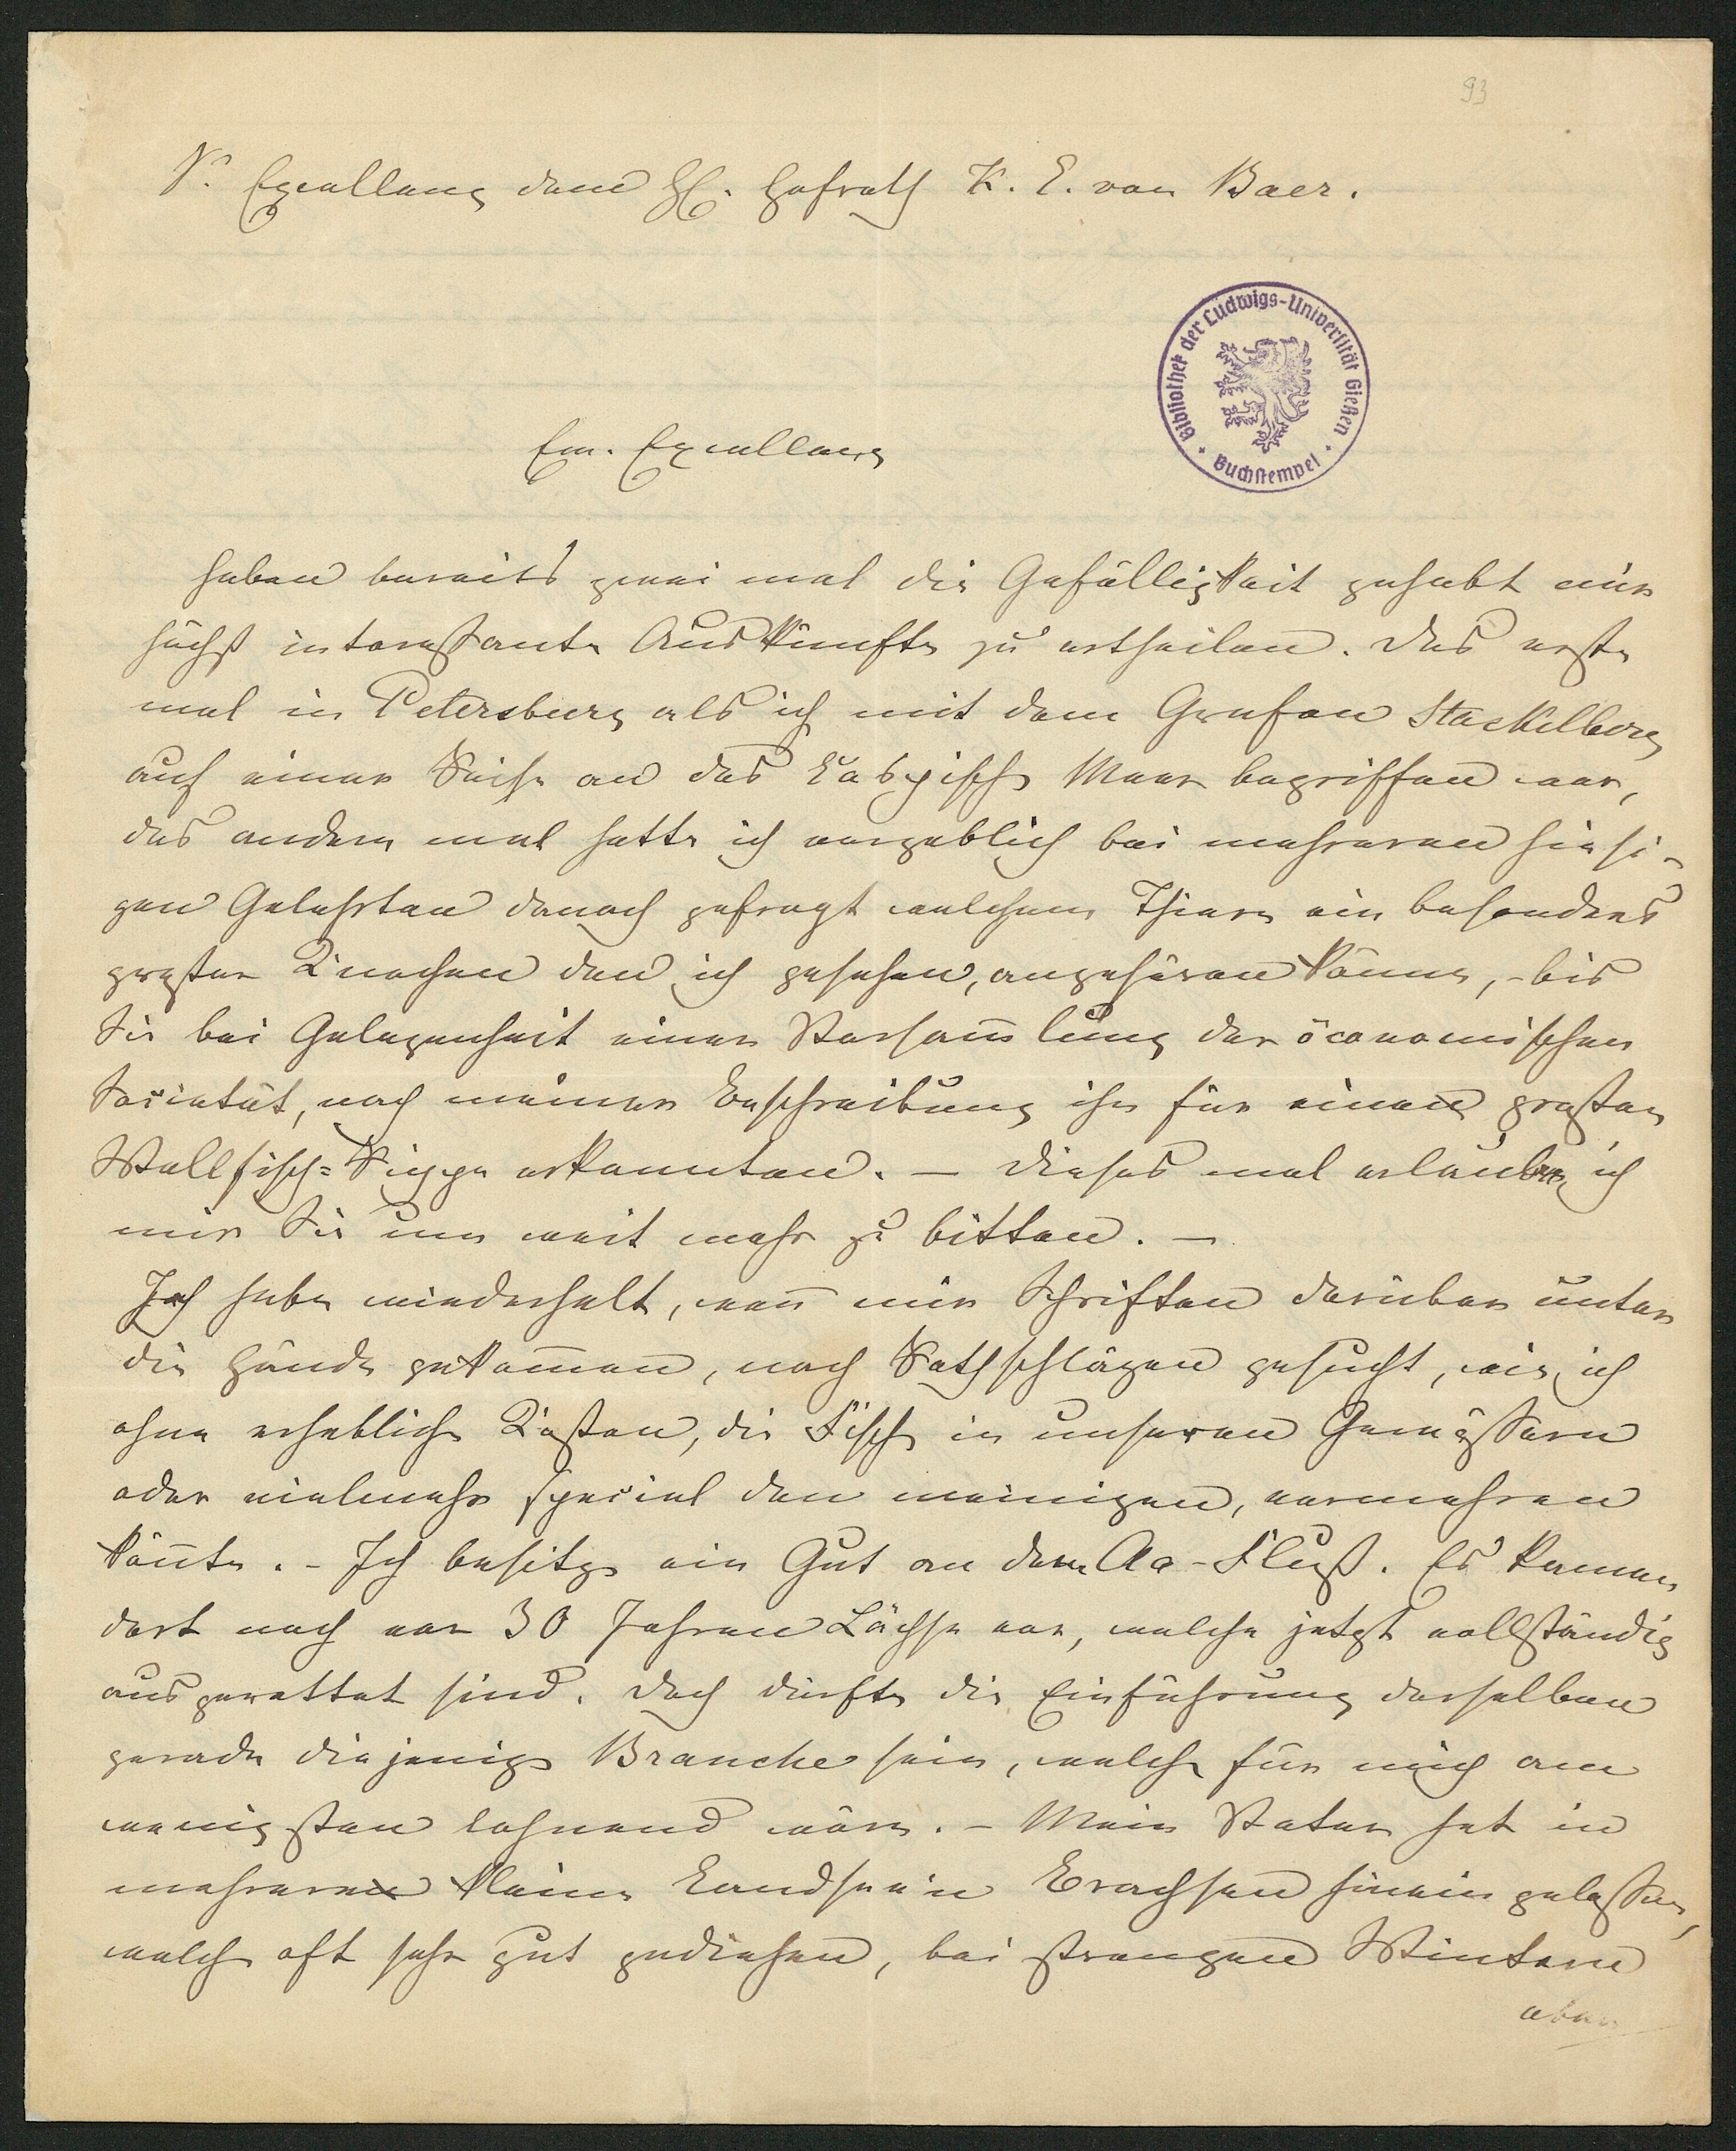 93
S. Excellenz dem H. Hofrath K. E. von Baer.
Bibliothek der Ludwigs-Universität Gießen
Buchstempel
Ew. Excellenz
haben bereits zwei mal die Gefälligkeit gehabt mir
höchst interessante Auskünfte zu ertheilen. Das erste
mal in Petersburg als ich mit dem Grafen Stackelberg
auf einer Reise an das Caspische Meer begriffen war,
das andere mal hatte ich vergeblich bei mehreren hiesi-
gen Gelehrten danach gefragt welchem Thiere ein besonders
großer Knochen den ich gesehen, angehören könne, - bis
Sie bei Gelegenheit einer Versam̄lung der öconomischen
Societät, nach meiner Beschreibung ihn für einen großen
Wallfisch=Rippe erkannten. — Dieses mal erlaube ich
mir Sie um weit mehr zu bitten. —
Ich habe wiederholt, wen̄ mir Schriften darüber unter
die Hände gekom̄en, nach Rathschlägen gesucht, wie ich
ohne erhebliche Kosten, die Fische in unseren Gewässern
oder vielmehr special den meinigen, vermehren
kön̄te. - Ich besitze ein Gut an dem Aa-Fluß. Es kamen
dort noch vor 30 Jahren Lächse vor, welche jetzt vollständig
ausgerottet sind. Doch dürfte die Einführung derselben
gerade diejenige Branche sein, welche für mich am
wenigsten lohnend wäre. - Mein Vater hat in
mehrere kleine Landseen Brachsen hinein gelassen,
welche oft sehr gut gediehen, bei strengen Wintern
aber